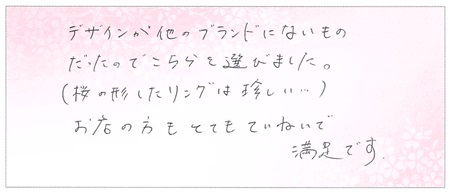 デザインが他のブランドにないもの
だったのでこちらを選びました。
(桜の形したリングは珍しい…)
お店の方もとてもていねいで
満足です.